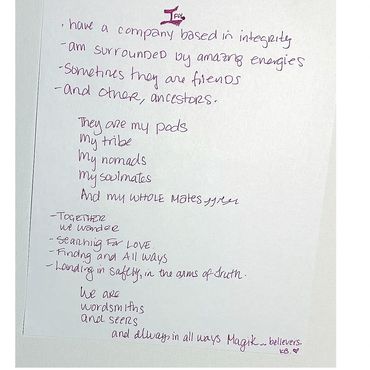 I
· have a company based in integrity
- am surrounded by amazing energies
- Sometimes they are friends
- and other, ancestors.
They are my pods
my tribe
my nomads
my soulmates
And my WHOLE Mates
- TOGETHER
we wander
- Searching For LOVE
- Finding and All ways
- Landing in safety, in the arms of truth.
We are
wordsmiths
and seers
and always in all ways Magik - believers.
KB. ♥